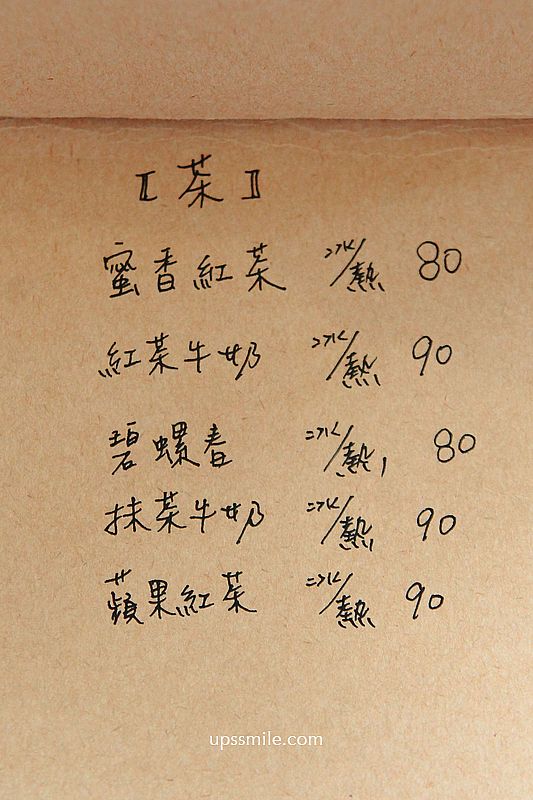 【茶】
蜜香紅茶 冰/熱 80
紅茶牛奶 冰/熱 90
碧螺春 冰/熱 80
抹茶牛奶 冰/熱 90
蘋果紅茶 冰/熱 90
upssmile.com